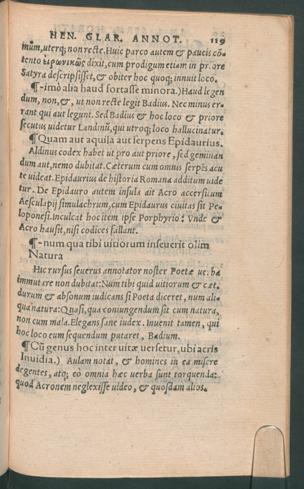 HEN. GLAR. ANNOT. 119
mûm, uterq; non recte. Huic parco autem & paucis cō-
tento εἰρωνικῶς dixit, cum prodigum etiam in priore
Satyra descripsisset, & obiter hoc quoq; innuit loco.
¶-imò alia haud fortasse minora.) Haud legen
dum, non, &, ut non recte legit Badius. Nec minus er-
rant qui aut legunt. Sed Badius & hoc loco & priore
secutus uidetur Landinū, qui utroq; loco hallucinatur.
¶ Quam aut aquila aut serpens Epidaurius.
Aldinus codex habet ut pro aut priore, sed geminan
dum aut, nemo dubitat. Cæterum cum omnis serpēs acu
te uideat. Epidaurius de historia Romana additum uide
tur. De Epidauro autem insula ait Acro accersitum
Aesculapij simulachrum, cum Epidaurus ciuitas sit Pe-
loponesi. inculcat hoc item ipse Porphyrio: Vnde &
Acro hausit, nisi codices fallant.
¶-num qua tibi uitiorum inseuerit olim
Natura
Hic rursus seuerus annotator noster Poetæ uerba
immutare non dubitat: Num tibi quid uitiorum & cæt.
durum & absonum iudicans si Poeta diceret, num ali-
qua natura: Quasi, qua coniungendum sit cum natura,
non cum mala. Elegans sane iudex. Inuenit tamen, qui
hoc loco eum sequendum putaret, Badium.
¶ Cū genus hoc inter uitæ uersetur, ubi acris
Inuidia.) Aulam notat, & homines in ea misere
degentes, atq; eò omnia hæc uerba sunt torquenda:
quod Acronem neglexisse uideo, & quosdam alios.